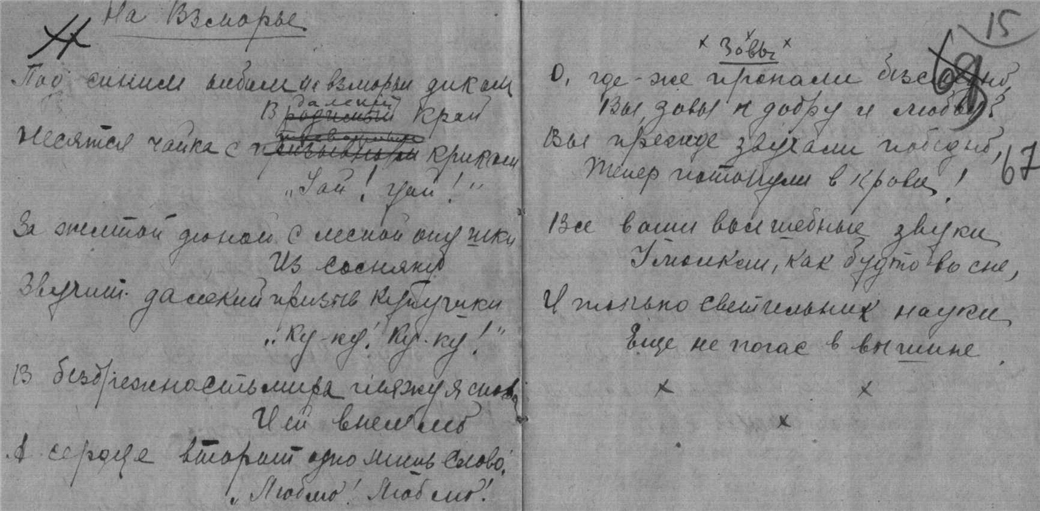 На Взморье
Под синим небом на взморьи диком
далекий
В родимый край
Несятся чайка с призывным криком
"Гай! гай!"
За желтой дюной с лесной опушки
Из сосняку
Звучит далекий призыв кукушки
"Ку-ку! Ку-ку!"
В безбрежность мира гляжу я снова
И ей внемлю
А сердце вторит одно лишь слово:
"Люблю! Люблю!
15
69
67
Зовы
О, где-же пропали безследно,
Вы, зовы к добру и любви?
Вы прежде звучали победно,
Тепер потонули в крови!
Все ваши волшебные звуки
Умолкли, как будто во сне,
И только светильник науки
Еще не погас в вышине